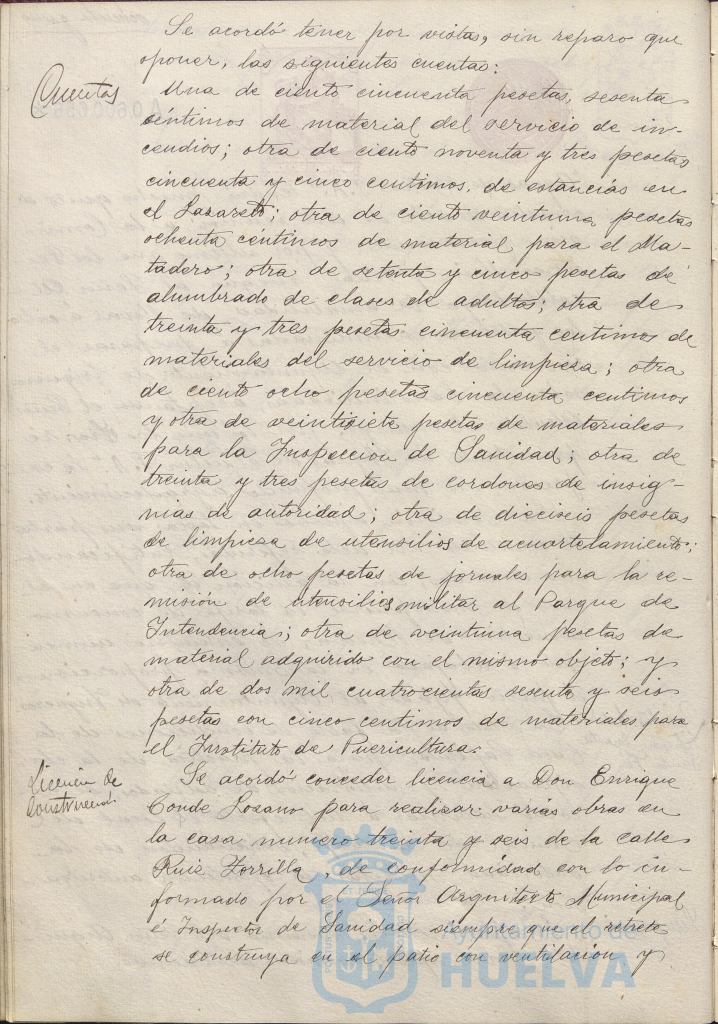 Se acordó tener por vistas, sin reparo que
oponer, las siguientes cuentas:
Cuentas
Una de ciento cincuenta pesetas, sesenta
céntimos de material del servicio de in-
cendios; otra de ciento noventa y tres pesetas
cincuenta y cinco centimos, de estancias en
el Lazareto; otra de ciento veintiuna pesetas
ochenta céntimos de material para el Ma-
tadero; otra de setenta y cinco pesetas de
alumbrado de clases de adultos; otra de
treinta y tres pesetas cincuenta centimos de
materiales del servicio de limpieza; otra
de ciento ocho pesetas cincuenta centimos
y otra de veintisiete pesetas de materiales
para la Inspeccion de Sanidad; otra de
treinta y tres pesetas de cordones de insig-
nias de autoridad; otra de dieciseis pesetas
de limpieza de utensilios de acuartelamiento;
otra de ocho pesetas de jornales para la re-
misión de utensilios militar al Parque de
Intendencia; otra de veintiuna pesetas de
material adquirido con el mismo objeto; y
otra de dos mil cuatrocientas sesenta y seis
pesetas con cinco centimos de materiales para
el Instituto de Puericultura.
Licencia de
Construcción
Se acordó conceder licencia a Don Enrique
Conde Losano para realizar varias obras en
la casa numero treinta y seis de la calle
Ruiz Zorrilla, de conformidad con lo in-
formado por el Señor Arquitecto Municipal
é Inspector de Sanidad siempre que el retrete
se construya en el patio con ventilación y
Ayuntamiento de
HUELVA